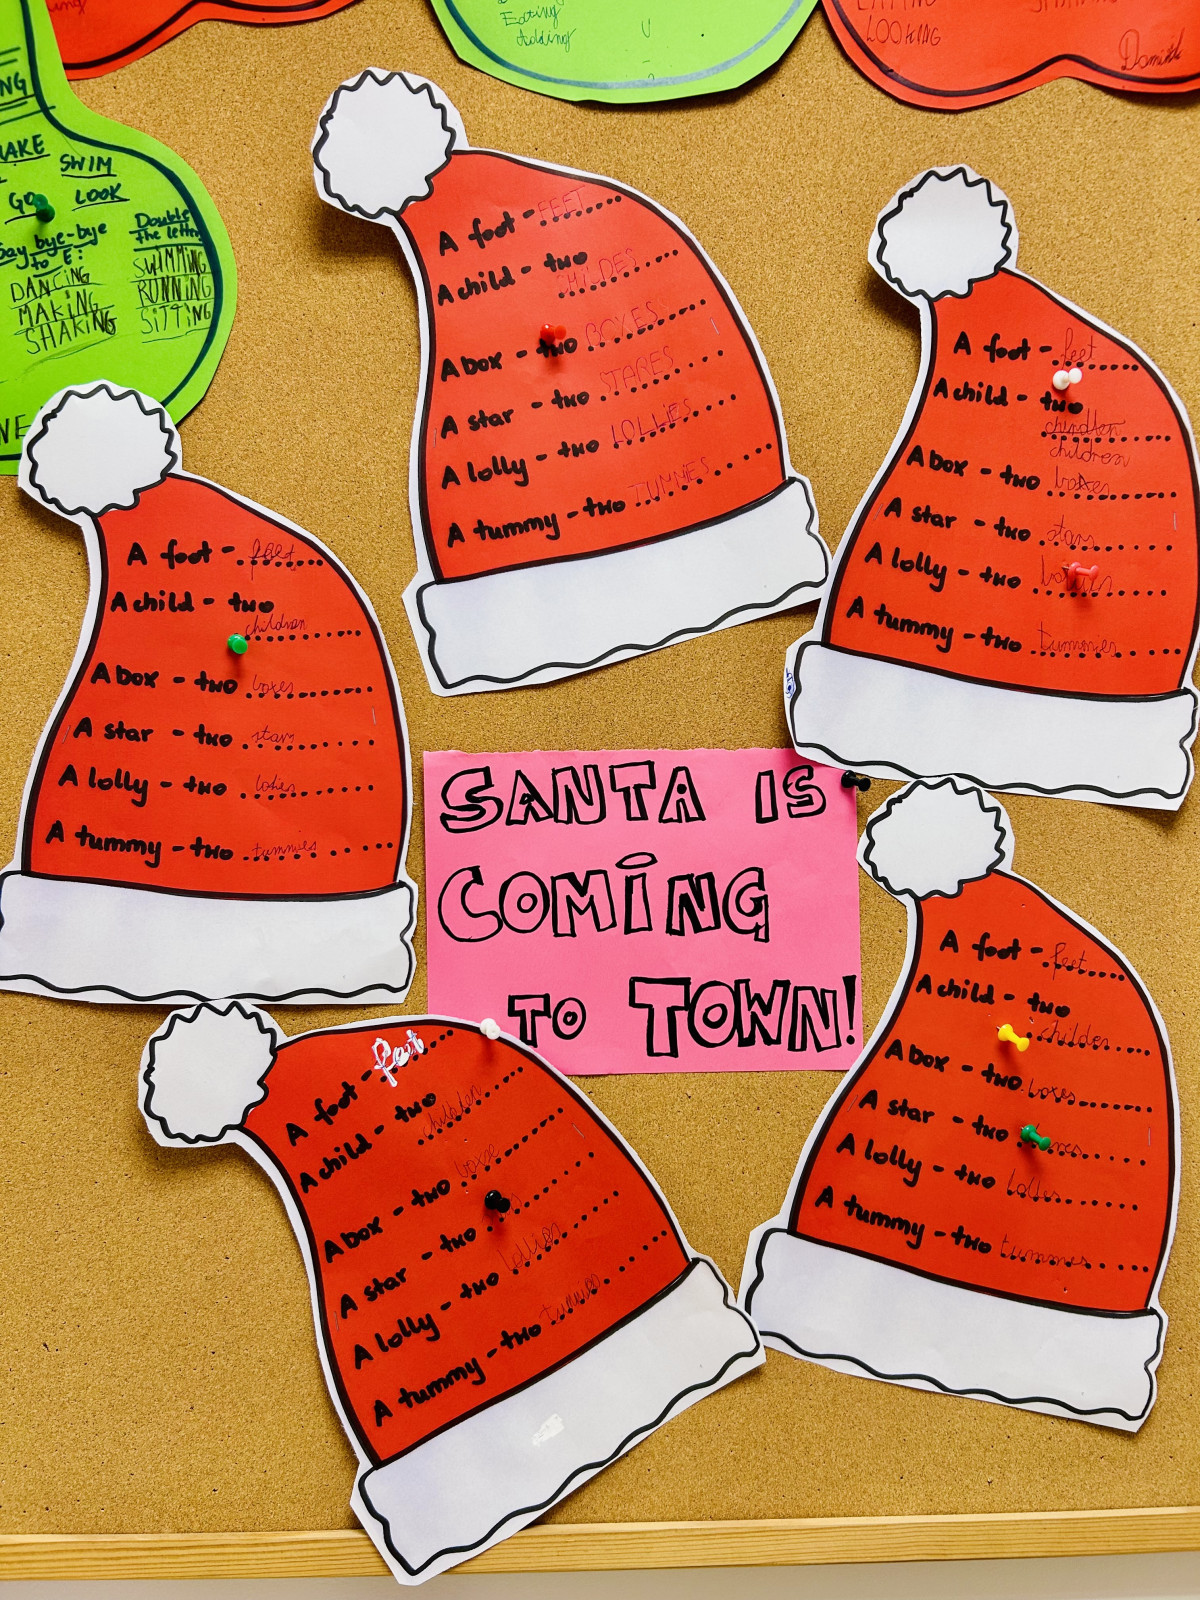 Eating
LOOKING
Dominik
MAKE
SWIM
GO LOOK
Say bye-bye
to E:
DANCING
MAKING
SHAKING
Double
the letter
SWIMMING
RUNNING
SITTING
A foot - FEET
A child - two
CHILDES
A box - two BOXES
A star - two STARES
A lolly - two LOLLIES
A tummy - two TUMMIES
A foot - feet
A child - two
children
A box - two boxes
A star - two stars
A lolly - two
A tummy - two tummies
A foot - feet
A child - two
children
A box - two boxes
A star - two stars
A lolly - two lolies
A tummy - two tummies
SANTA IS
COMING
TO TOWN!
A foot - feet
A child - two
childen
A box - two boxes
A star - two
A lolly - two Lollies
A tummy - two tummes
A foot -
A child - two
children
A box - two boxe
A star - two
A lolly - two lollies
A tummy - two